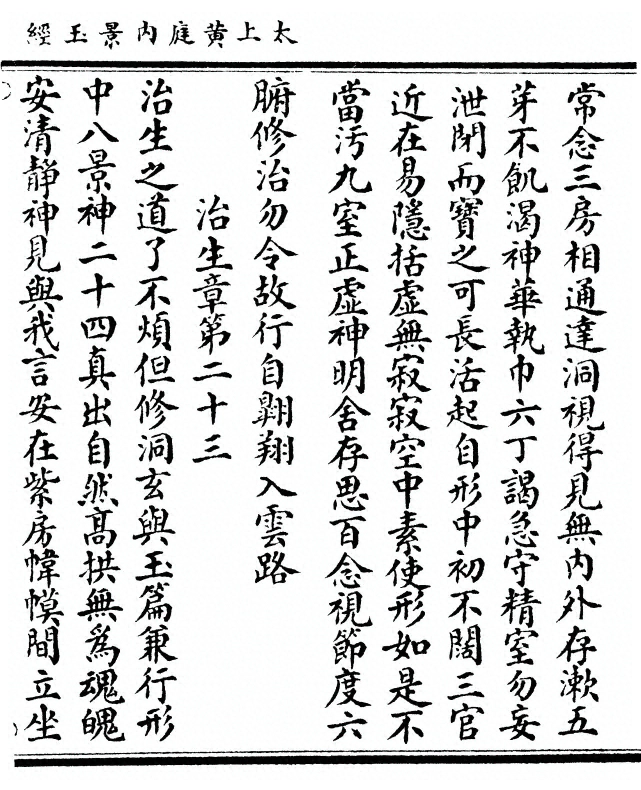 太上黄庭內景玉經
常念三房相通達洞視得見無內外存漱五
芽不飢渴神華執巾六丁謁急守精室勿妄
泄閉而寶之可長活起自形中初不闊三官
近在易隱括虛無寂寂空中素使形如是不
當汚九室正虛神明舍存思百念視節度六
腑修治勿令故行自翺翔入雲路
治生章第二十三
治生之道了不煩但修洞玄與玉篇兼行形
中八景神二十四真出自然高拱無爲魂魄
安清靜神見與我言安在紫房幃幙間立坐